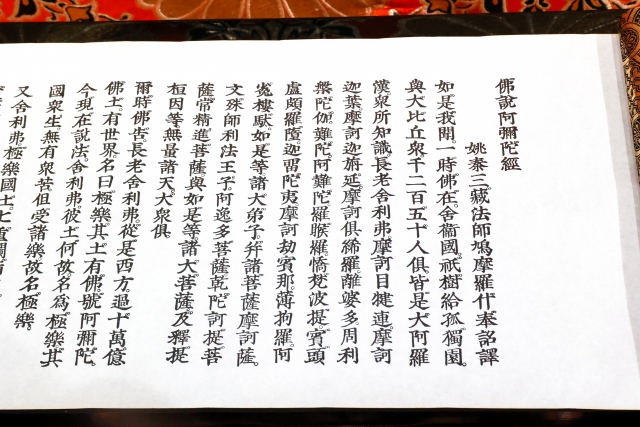 佛說阿彌陀經
姚秦三藏法師鳩摩羅什奉詔譯
如是我聞。一時佛在。舍衞國。祇樹給孤獨園。
與大比丘衆。千二百五十人俱。皆是大阿羅
漢。衆所知識。長老舍利弗。摩訶目犍連。摩訶
迦葉。摩訶迦旃延。摩訶俱絺羅。離婆多。周利
槃陀伽。難陀。阿難陀。羅睺羅。憍梵波提。賓頭
盧頗羅墮。迦留陀夷。摩訶劫賓那。薄拘羅。阿
㝹樓馱。如是等諸大弟子。幷諸菩薩摩訶薩。
文殊師利法王子。阿逸多菩薩。乾陀訶提菩
薩。常精進菩薩。與如是等諸大菩薩。及釋提
桓因等。無量諸天。大衆俱。
爾時佛告。長老舍利弗。從是西方。過十萬億
佛土。有世界。名曰極樂。其土有佛。號阿彌陀。
今現在說法。舍利弗。彼土何故。名爲極樂。其
國衆生。無有衆苦。但受諸樂。故名極樂。
又舍利弗。極樂國土。七重欄